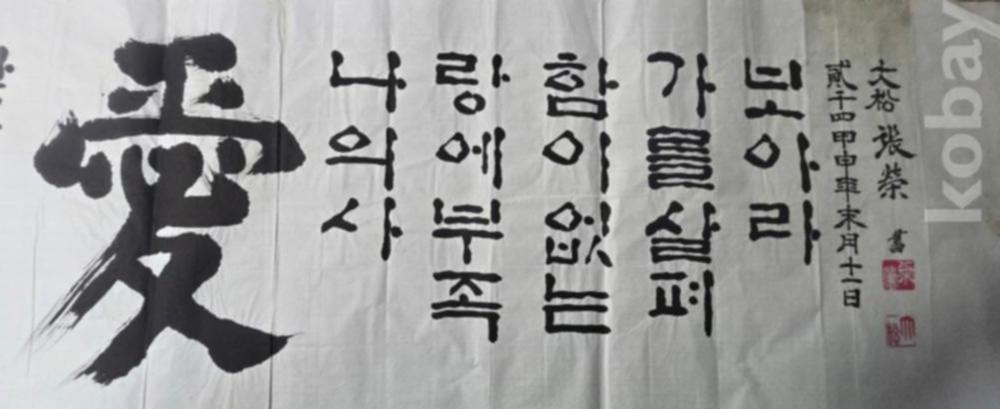 愛
나의사
랑에부족
함이없는
가를살피
보아라
貳千四甲申年末月十一日
大松 張榮 書
kobay